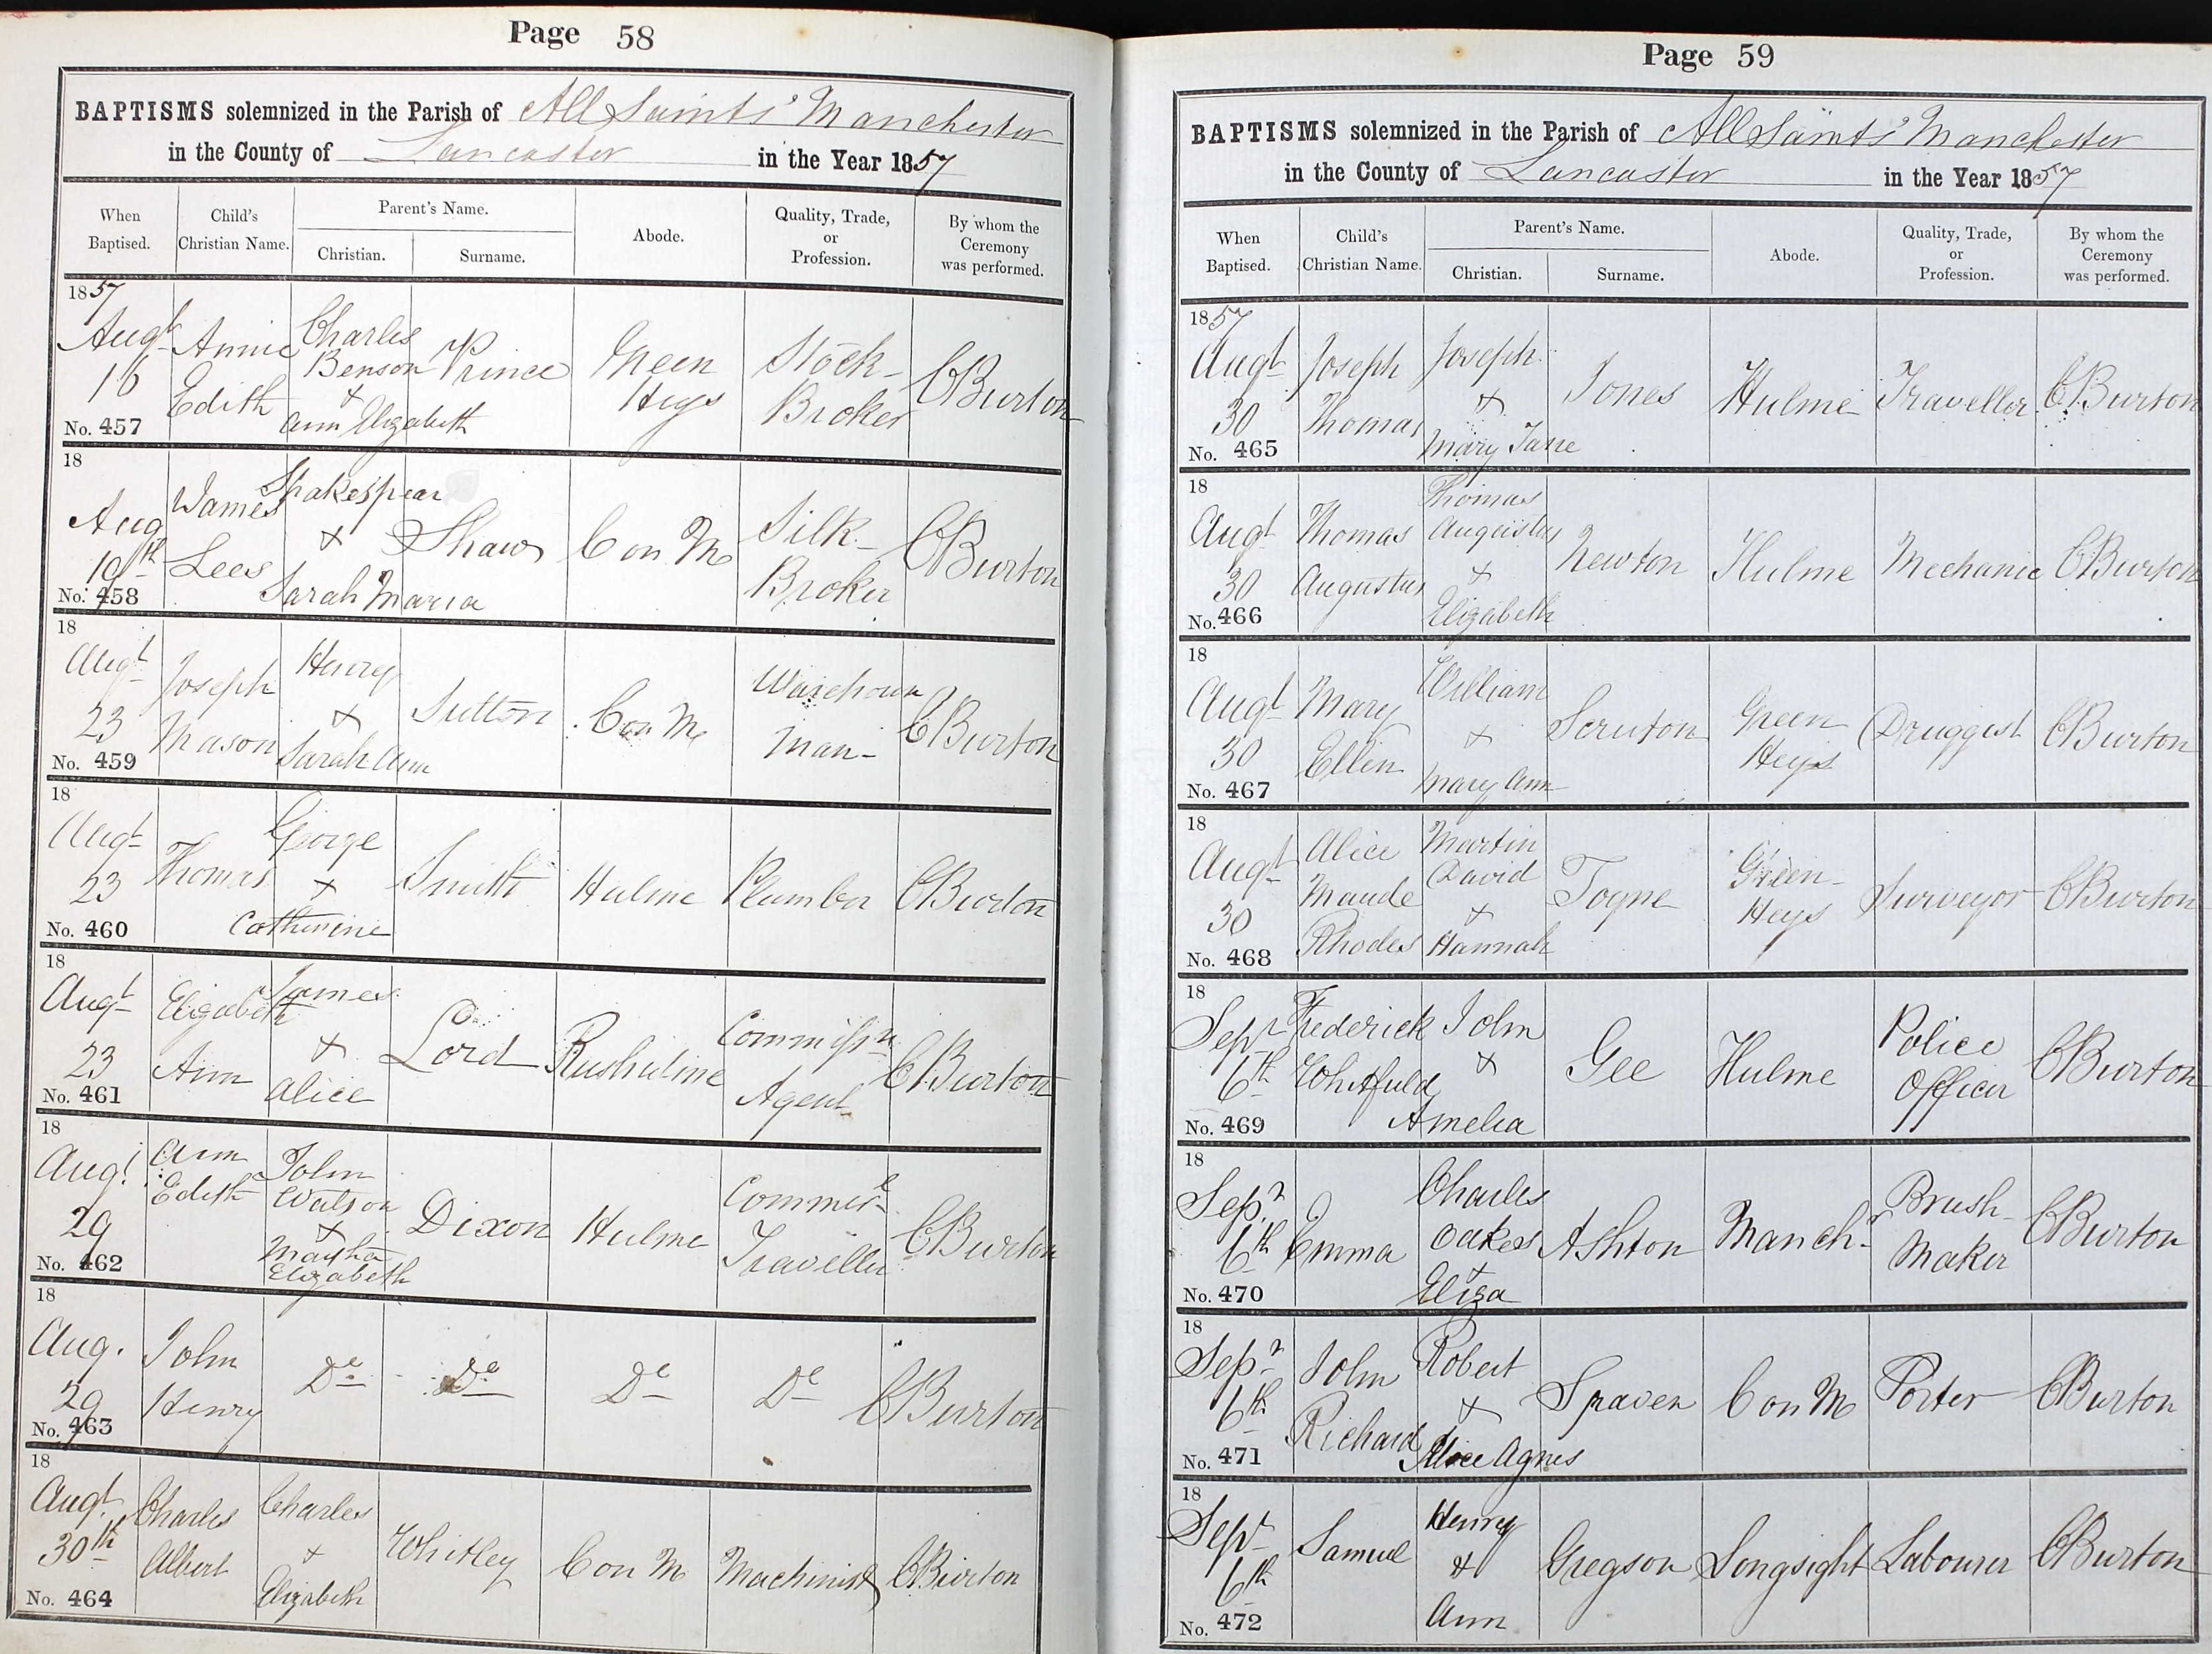 Page 58
BAPTISMS solemnized in the Parish of All Saints' Manchester
in the County of Lancaster in the Year 1857
When Baptised. Child's Christian Name. Parent's Name. Christian. Surname. Abode. Quality, Trade, or Profession. By whom the Ceremony was performed.
1857
Augt 16 Annie Edith Charles Benson + Ann Elizabeth Prince Green Heys Stock-Broker CBurton
No. 457
18
Aug James Lees Shakespear + Sarah Maria Shaw C on M Silk-Broker CBurton
No. 458
18
Augt 23 Joseph Mason Henry + Sarah Ann Sutton C on M Warehouse man- CBurton
No. 459
18
Augt 23 Thomas George + Catherine Smith Hulme Plumber CBurton
No. 460
18
Augt 23 Elizabeth Ann James + Alice Lord Rusholme Commissn Agent CBurton
No. 461
18
Augt 29 Ann Edith John Watson + Martha Elizabeth Dixon Hulme Commerl Traveller CBurton
No. 462
18
Aug. 29 John Henry De De De De CBurton
No. 463
18
Augt 30th Charles Albert Charles + Elizabeth Whitley C on M Machinist CBurton
No. 464
Page 59
BAPTISMS solemnized in the Parish of All Saints' Manchester
in the County of Lancaster in the Year 1857
When Baptised. Child's Christian Name. Parent's Name. Christian. Surname. Abode. Quality, Trade, or Profession. By whom the Ceremony was performed.
1857
Augt 30 Joseph Thomas Joseph + Mary Jane Jones Hulme Traveller CBurton
No. 465
18
Augt 30 Thomas Augustus Thomas Augustus + Elizabeth Newton Hulme Mechanic CBurton
No. 466
18
Augt 30 Mary Ellen William + Mary Ann Scruton Green Heys Druggist CBurton
No. 467
18
Augt 30 Alice Maude Rhodes Martin David + Hannah Green-Heys Surveyor CBurton
No. 468
18
Sepr 6th Frederick Whitfield John + Amelia Gee Hulme Police Officer CBurton
No. 469
18
Sepr 6th Emma Charles Oakes + Eliza Ashton Manchr Brush Maker CBurton
No. 470
18
Sepr 6th John Richard Robert + Alice Agnes Spaven C on M Porter CBurton
No. 471
18
Sepr 6th Samuel Henry + Ann Gregson Longsight Labourer CBurton
No. 472